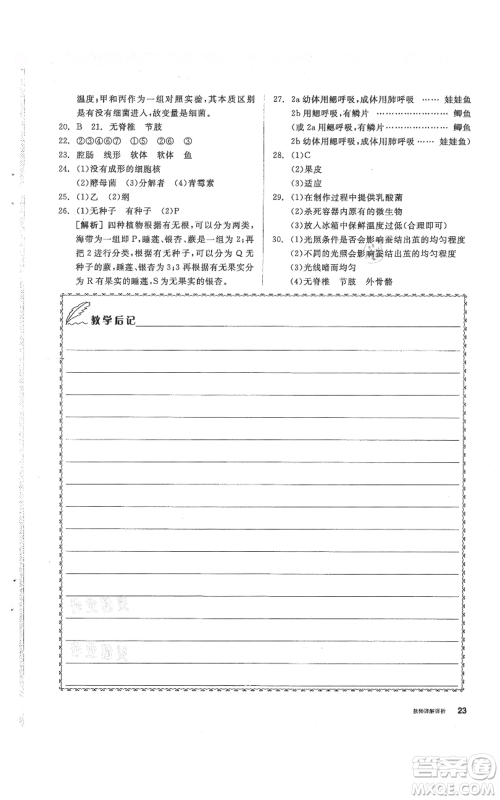 温度;甲和丙作为一组对照实验,其实质区别
是有没有细菌进入,故变量是细菌。
20. B　21. 无脊椎　节肢
22. ②③④⑥⑦　①⑤　⑥　③
23. 腔肠　线形　软体　软体　鱼
24. (1)没有成形的细胞核
(2)酵母菌　(3)分解者　(4)青霉素
25. (1)乙　(2)纲
26. (1)无种子　有种子　(2)P
[解析] 四种植物根据有无种子可以分为两类,
海带为一组即P,睡莲、银杏、蕨为一组即1;再
把2分成两组,无种子的是蕨可以为Q无种子
的蕨,睡莲和银杏为3;3再根据有无果实分
为R有果实的睡莲、S无果实的银杏。
27. 2a幼体用鳃呼吸,成体用肺呼吸 …… 娃娃鱼
2b用鳃呼吸,有鳞片 ………………… 鲫鱼
(或2a用鳃呼吸,有鳞片 ……………… 鲫鱼
2b幼体用鳃呼吸,成体用肺呼吸 …… 娃娃鱼)
28. (1)C
(2)果皮
(3)适应
29. (1)在制作过程中提供乳酸菌
(2)杀死容器内原有的微生物
(3)放入冰箱中保鲜温度过低(合理即可)
30. (1)光照条件是否会影响蚕结出茧的均匀程度
(2)不同的光照会影响蚕结出茧的均匀程度
(3)光线暗而均匀
(4)无脊椎　节肢　外骨骼
教学后记
教师详解详析　23
答案圈
MXQE.COM